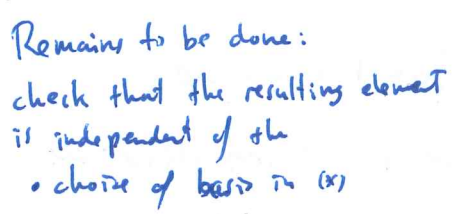 Remains to be done:
check that the resulting element
is independent of the
• choice of basis in (*)